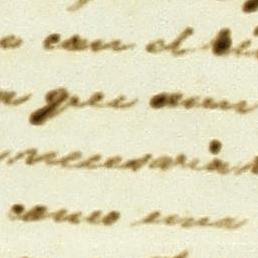 con el
que aun
necesaria
como una